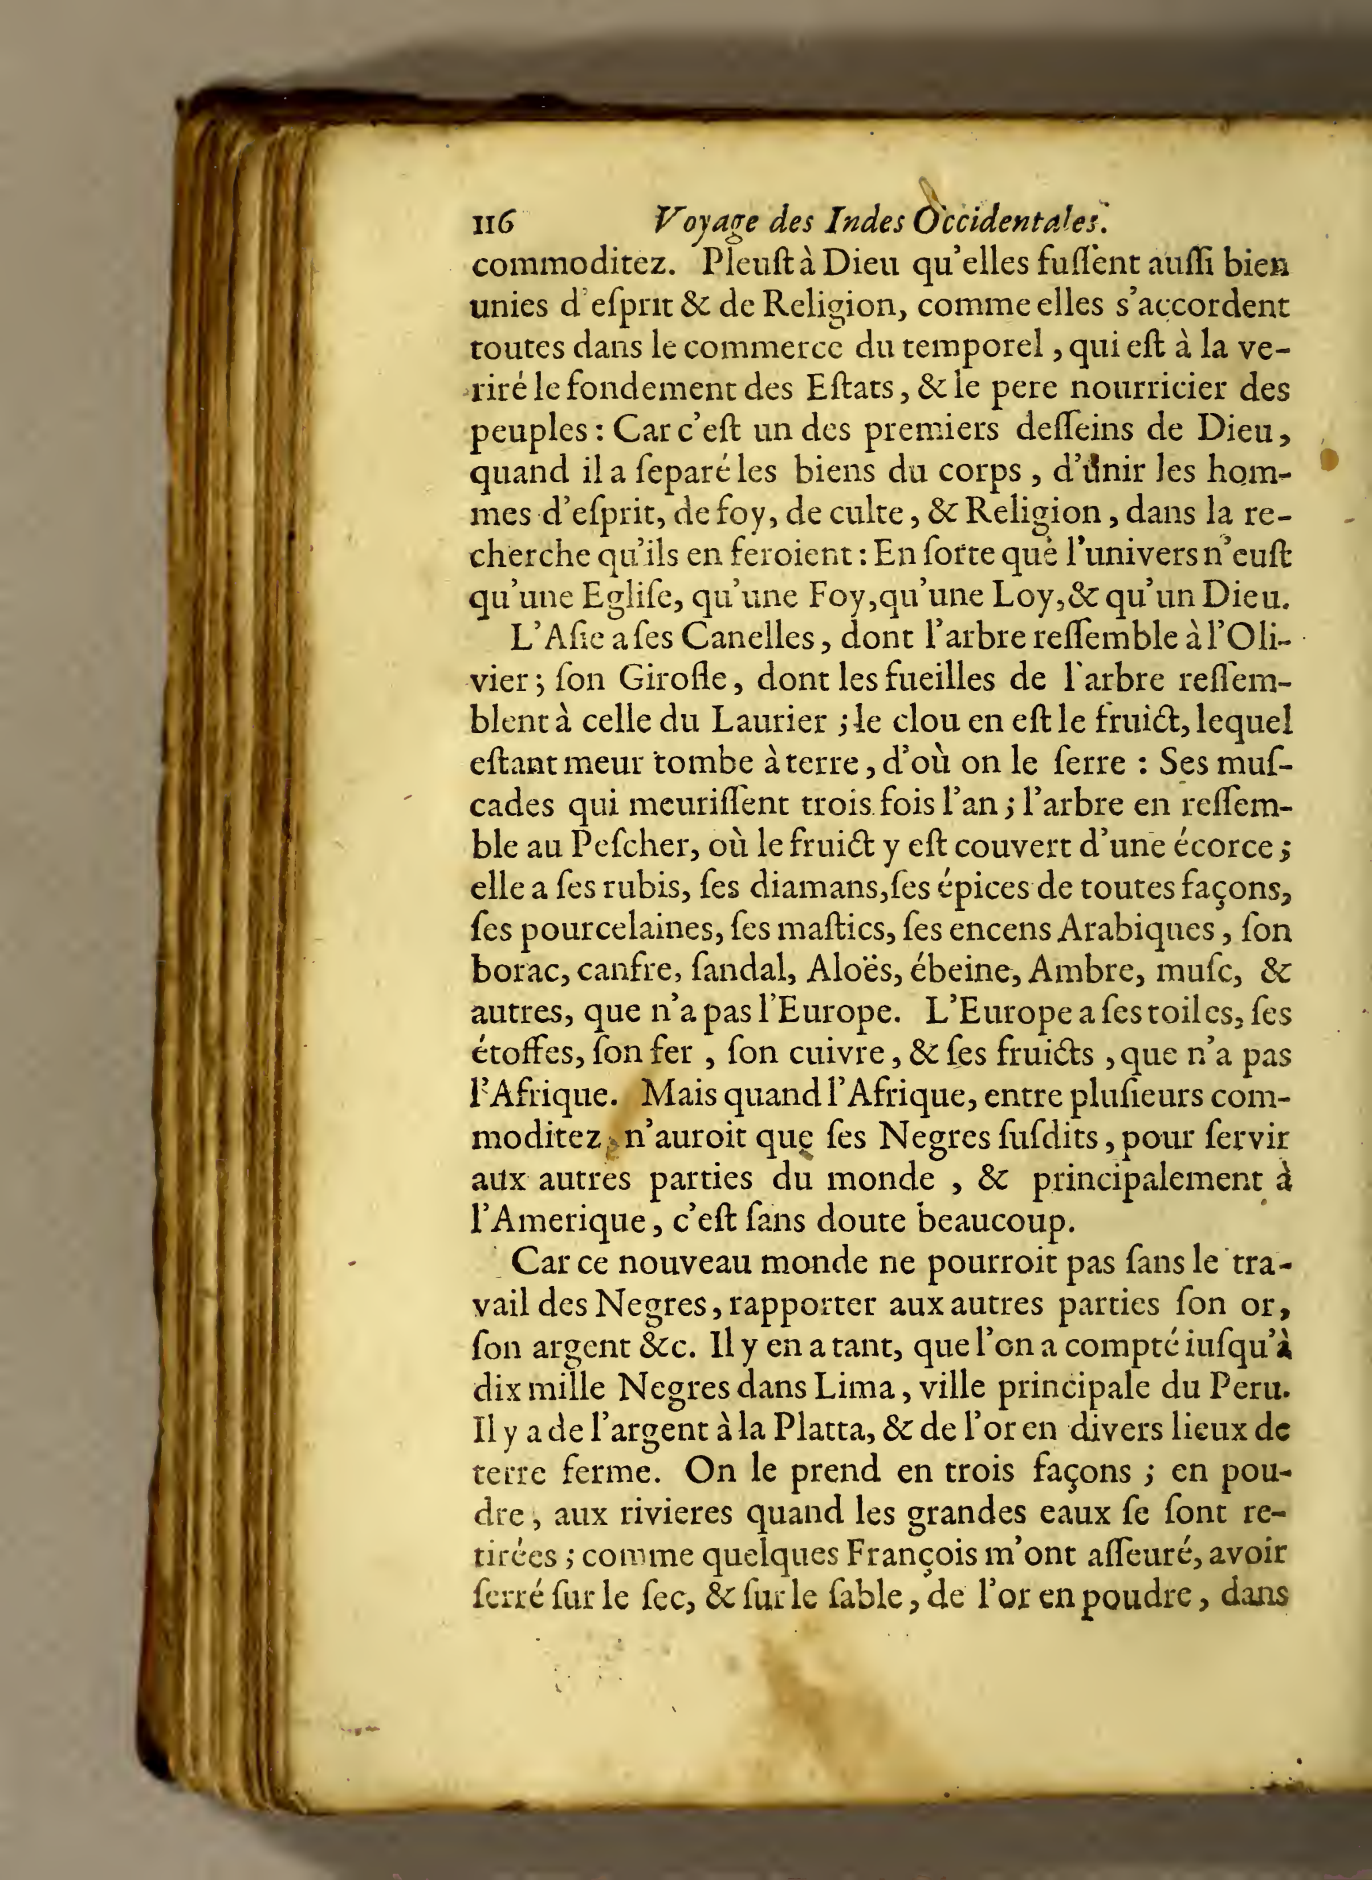 116 Voyage des Indes Occidentales.
commoditez. Pleuſt à Dieu qu'elles fuſſent auſſi bien
unies d'eſprit & de Religion, comme elles s'accordent
toutes dans le commerce du temporel, qui eſt à la ve-
rité le fondement des Eſtats, & le pere nourricier des
peuples : Car c'eſt un des premiers deſſeins de Dieu,
quand il a ſeparé les biens du corps, d'unir les hom-
mes d'eſprit, de foy, de culte, & Religion, dans la re-
cherche qu'ils en feroient : En ſorte que l'univers n'euſt
qu'une Egliſe, qu'une Foy, qu'une Loy, & qu'un Dieu.
L'Aſie a ſes Canelles, dont l'arbre reſſemble à l'Oli-
vier ; ſon Girofle, dont les fueilles de l'arbre reſſem-
blent à celle du Laurier ; le clou en eſt le fruict, lequel
eſtant meur tombe à terre, d'où on le ſerre : Ses muſ-
cades qui meuriſſent trois fois l'an ; l'arbre en reſſem-
ble au Peſcher, où le fruict y eſt couvert d'une écorce ;
elle a ſes rubis, ſes diamans, ſes épices de toutes façons,
ſes pourcelaines, ſes maſtics, ſes encens Arabiques, ſon
borac, canfre, ſandal, Aloës, ébeine, Ambre, muſc, &
autres, que n'a pas l'Europe. L'Europe a ſes toiles, ſes
étoffes, ſon fer, ſon cuivre, & ſes fruicts, que n'a pas
l'Afrique. Mais quand l'Afrique, entre pluſieurs com-
moditez, n'auroit que ſes Negres ſuſdits, pour ſervir
aux autres parties du monde, & principalement à
l'Amerique, c'eſt ſans doute beaucoup.
Car ce nouveau monde ne pourroit pas ſans le tra-
vail des Negres, rapporter aux autres parties ſon or,
ſon argent &c. Il y en a tant, que l'on a compté iuſqu'à
dix mille Negres dans Lima, ville principale du Peru.
Il y a de l'argent à la Platta, & de l'or en divers lieux de
terre ferme. On le prend en trois façons ; en pou-
dre, aux rivieres quand les grandes eaux ſe ſont re-
tirées ; comme quelques François m'ont aſſeuré, avoir
ſerré ſur le ſec, & ſur le ſable, de l'or en poudre, dans